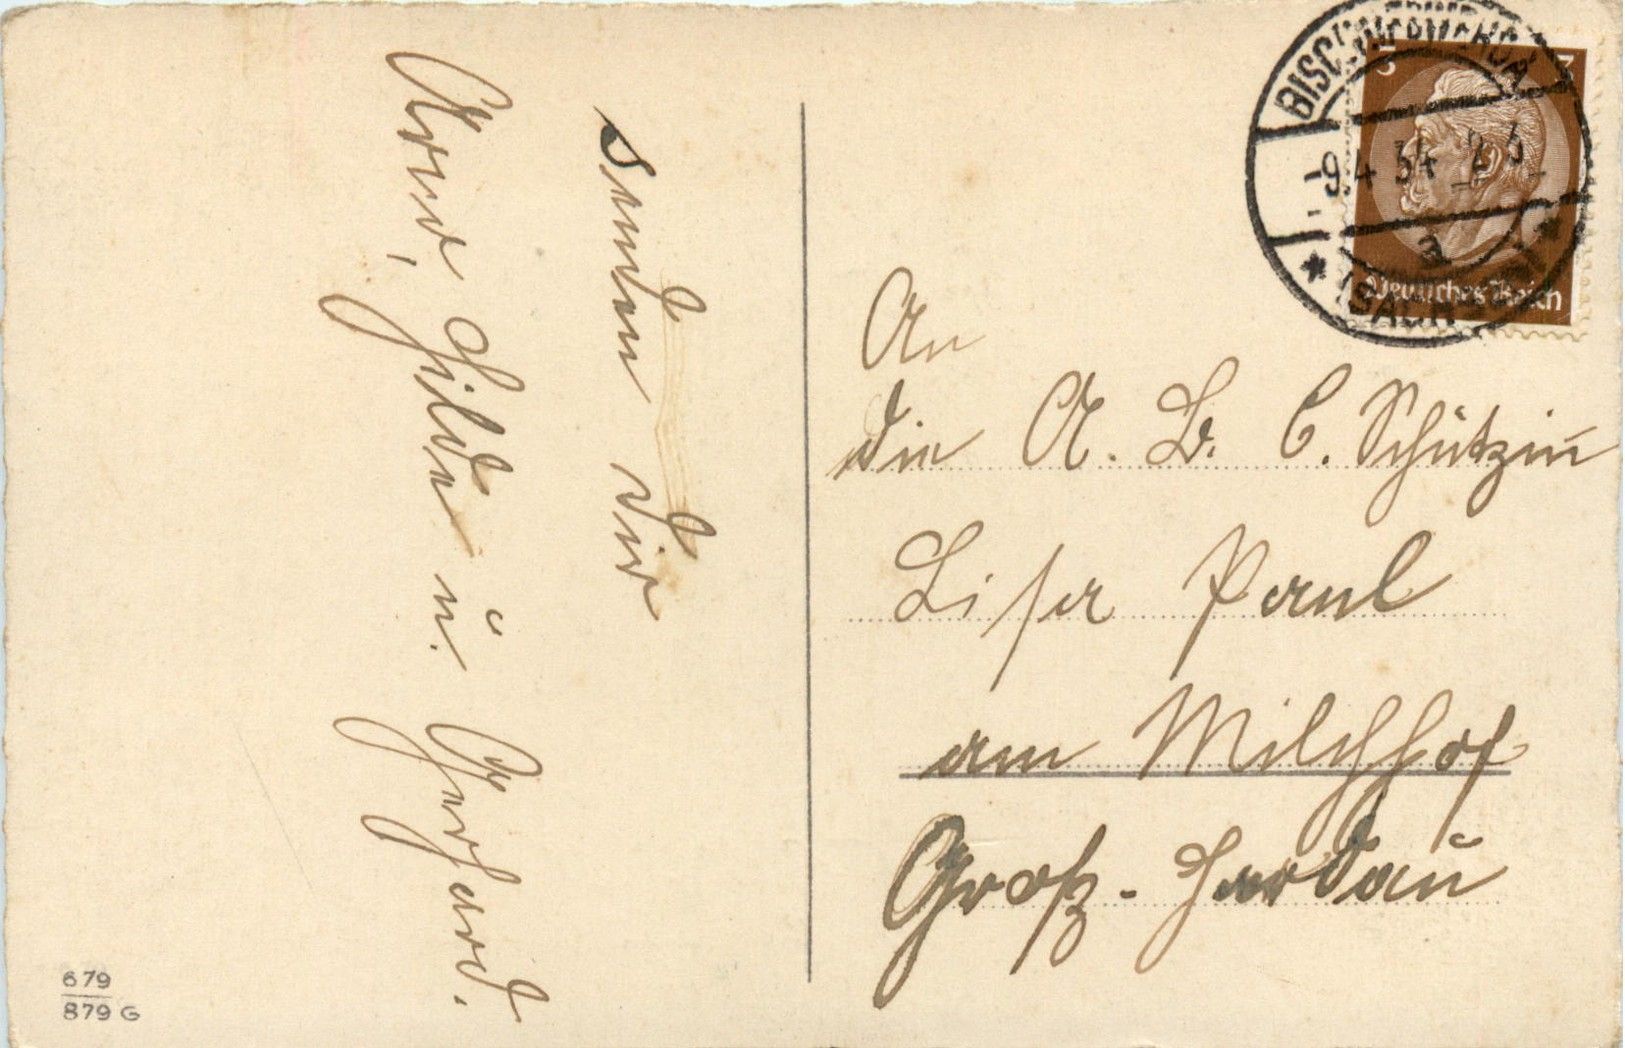 senden dir
Arnd, Hilde u. Gerhard.
679
879 G
BISCHOFSWERDA
-9.4.34. 2-3
a
(SACHSEN)
3 3
Deutsches Reich
An
die A. B. C. Schützin
Lisa Paul
am Milchhof
Groß-Hardau